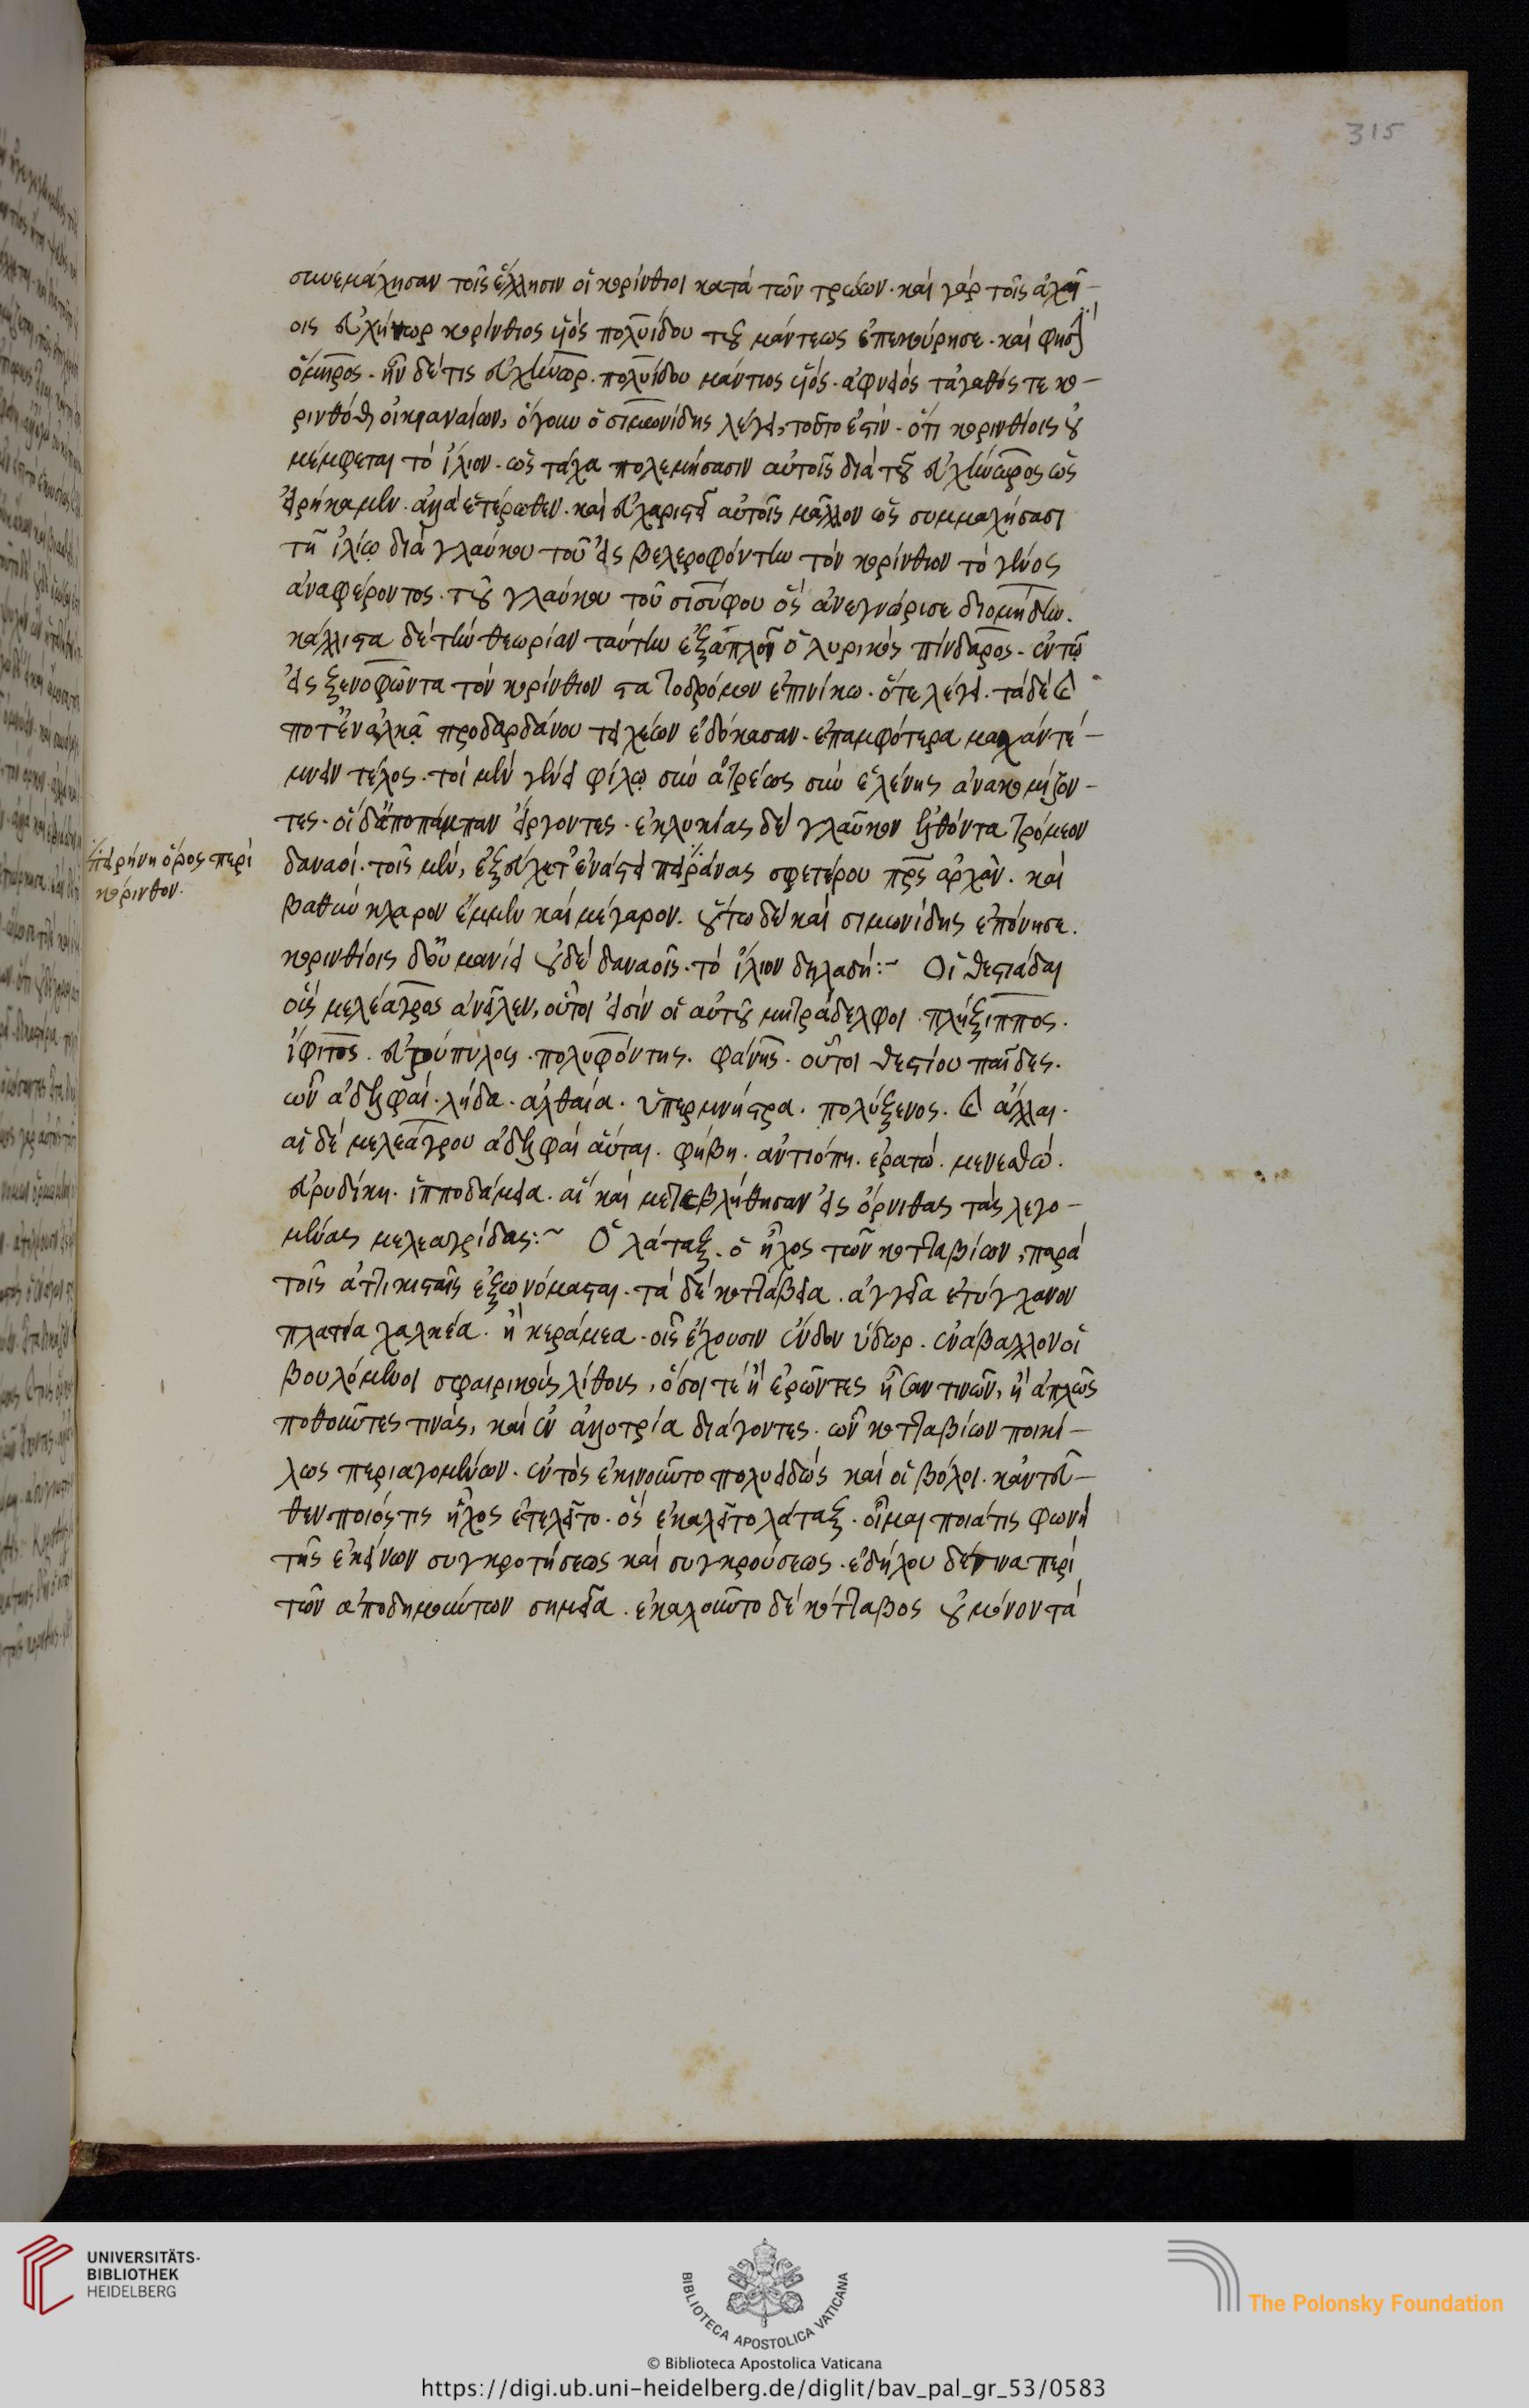 315
συνεμάχησαν τοῖς ἕλλησιν οἱ κορίνθιοι κατὰ τῶν τρώων. καὶ γὰρ τοῖς ἀχαι-
οις εὐχήνωρ κορίνθιος υἱὸς πολυίδου τοῦ μάντεως ἐπεκούρησε. καὶ φησὶ
ὅμηρος. ἦν δέ τις εὐχήνωρ. πολυίδου μάντιος υἱός. ἀφνειός τ' ἀγαθός τε κο-
ρινθόθι οἰκία ναίων, ὁ γοῦν ὁ σιμωνίδης λέγει, τοῦτο ἐστίν. ὅτι κορινθίοις οὐ
μέμφεται τὸ ἴλιον. ὡς τάχα πολεμήσασιν αὐτοῖς διὰ τοῦ εὐχήνωρος ὡς
εἰρήκαμεν. ἀλλὰ ἑτέρωθεν. καὶ εὐχαριστεῖ αὐτοῖς μᾶλλον ὡς συμμαχήσασι
τῇ ἰλίῳ διὰ γλαύκου τοῦ εἰς βελεροφόντην τὸν κορίνθιον τὸ γένος
ἀναφέροντος. τοῦ γλαύκου τοῦ σισύφου ὃς ἀνεγνώρισε διομήδην.
κάλλιστα δὲ τὴν θεωρίαν ταύτην ἐξαπλοῖ ὁ λυρικὸς πίνδαρος. ἐν τῷ
εἰς ξενοφῶντα τὸν κορίνθιον σταδιοδρόμον ἐπινίκῳ. ὅτε λέγει. τὰ δὲ καὶ
ποτ' ἐν ἀλκᾷ προδαρδάνου τειχέων ἐδόκασαν. ἐπαμφότερα μαχᾶν τέ-
μνειν τέλος. τοὶ μὲν γένει φίλῳ σὺν ἀτρέως σὺν ἑλένης ἀνακομίζον-
τες. οἱ δ' ἀποπάμπαν εἴργοντες. ἐκ λυκίας δὲ γλαῦκον ἐλθόντα τρόμεον
δαναοί. τοῖς μὲν, ἐξεύχετ' ἐν ἄστει πειράνας σφετέρου πατρὸς ἀρχὰν. καὶ
βαθὺν κλαρον ἔμμεν καὶ μέγαρον. οὕτω δὲ καὶ σιμωνίδης ἐπόνησε.
κορινθίοις δ' οὐ μανίει οὐδὲ δαναοῖς. τὸ ἴλιον δηλαδή:~ Οἱ θεστιάδαι
οὓς μελέαγρος ἀνεῖλεν, οὗτοι εἰσὶν οἱ αὐτοῦ μητράδελφοι. πλήξιππος.
ἴφιτος. εὐρύπυλος. πολυφόντης. φάνης. οὗτοι θεστίου παῖδες.
ὧν ἀδελφαί. λήδα. ἀλθαία. ὑπερμνήστρα. πολύξενος. καὶ ἄλλαι.
αἱ δὲ μελεάγρου ἀδελφαὶ αὗται. φήβη. ἀντιόπη. ἐρατώ. μενεσθώ.
εὐρυδίκη. ἱπποδάμεια. αἳ καὶ μετεβλήθησαν εἰς ὄρνιθας τὰς λεγο-
μένας μελεαγρίδας:~ Ὁ λάταξ. ὁ ἦχος τῶν κοτταβίων, παρὰ
τοῖς ἀττικισταῖς ἐξωνόμασται. τὰ δὲ κοττάβεια. ἀγγεῖα ἐτύγχανον
πλατέα χαλκέα. ἢ κεράμεα. οἷς ἔχουσιν ἔνδον ὕδωρ. ἐνάβαλλον οἱ
βουλόμενοι σφαιρικοὺς λίθους, ὅσοι τὲ ἢ ἐρῶντες ἦσαν τινῶν, ἢ ἁπλῶς
ποθοῦντες τινάς, καὶ ἐν ἀλλοτρία διάγοντες. ὧν κοτταβίων ποικί-
λως περιαγομένων. ἐντὸς ἐκινοῦντο πολυειδῶς καὶ οἱ βόλοι. κἀντεῦ-
θεν ποιός τις ἦχος ἐτελεῖτο. ὃς ἐκαλεῖτο λάταξ. οἶμαι ποιά τις φωνὴ
τῆς ἐκείνων συγκροτήσεως καὶ συγκρούσεως. ἐδήλου δέ τινα περὶ
τῶν ἀποδημούντων σημεῖα. ἐκαλοῦντο δὲ κότταβος οὐ μόνον τὰ
πειρήνη ὄρος περὶ
κόρινθον.
UNIVERSITÄTS-
BIBLIOTHEK
HEIDELBERG
BIBLIOTECA APOSTOLICA VATICANA
© Biblioteca Apostolica Vaticana
The Polonsky Foundation
https://digi.ub.uni-heidelberg.de/diglit/bav_pal_gr_53/0583